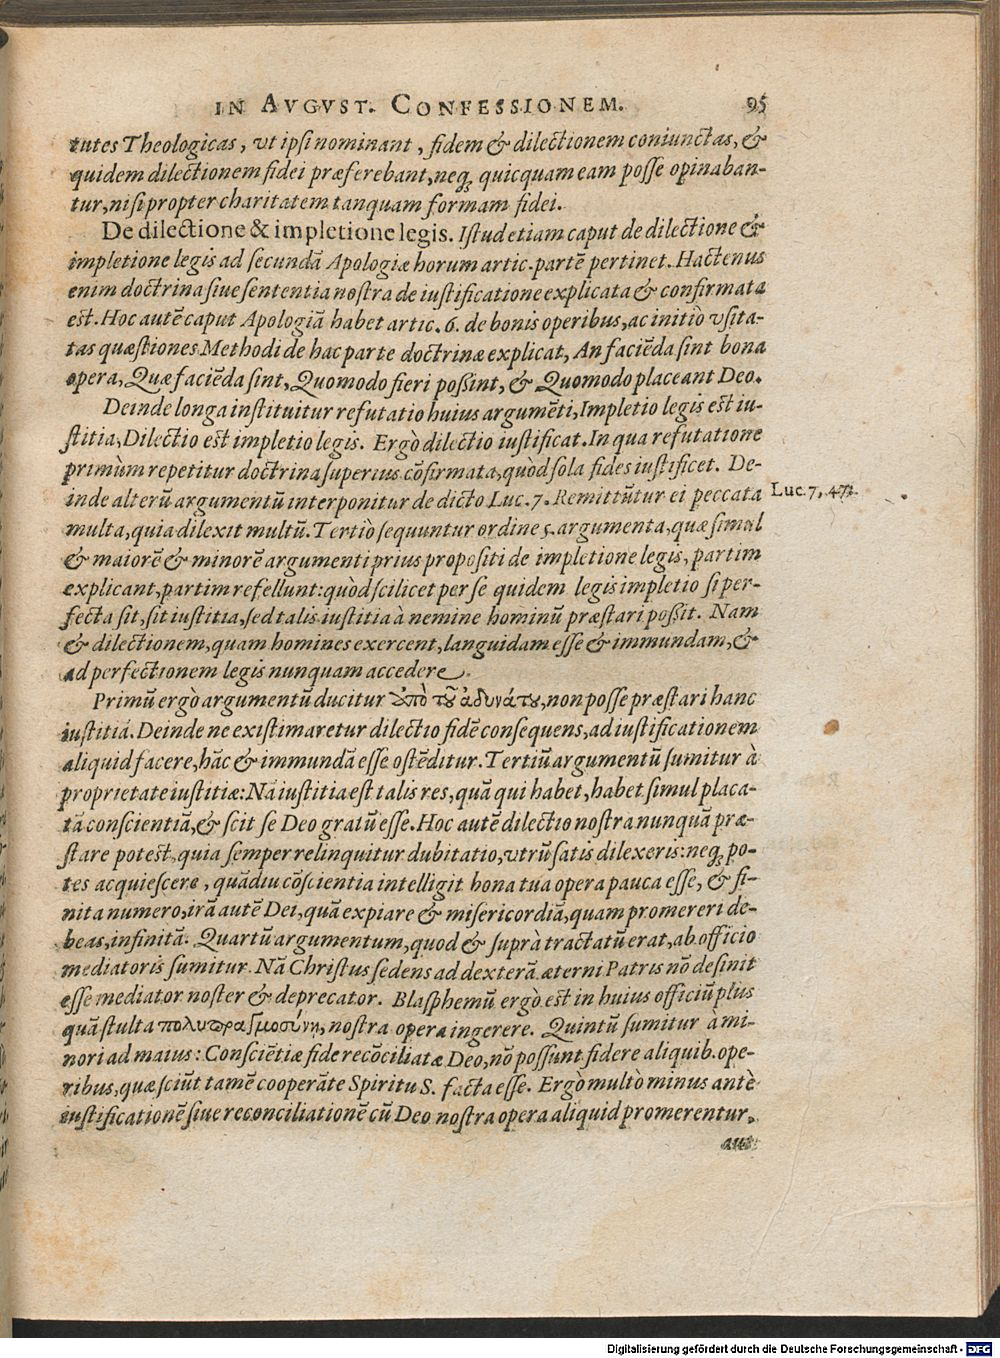 IN AVGVST. CONFESSIONEM. 95
tutes Theologicas, vt ipsi nominant, fidem & dilectionem coniunctas, &
quidem dilectionem fidei præferebant, neq; quicquam eam posse opinaban-
tur, nisi propter charitatem tanquam formam fidei.
De dilectione & impletione legis. Istud etiam caput de dilectione &
impletione legis ad secundā Apologiæ horum artic. partē pertinet. Hactenus
enim doctrina siue sententia nostra de iustificatione explicata & confirmata
est. Hoc autē caput Apologiā habet artic. 6. de bonis operibus, ac initiò vsita-
tas quæstiones Methodi de hac parte doctrinæ explicat, An faciēda sint bona
opera, Quæ faciēda sint, Quomodo fieri possint, & Quomodo placeant Deo.
Deinde longa instituitur refutatio huius argumēti, Impletio legis est iu-
stitia, Dilectio est impletio legis. Ergò dilectio iustificat. In qua refutatione
primùm repetitur doctrina superius cōfirmata, quòd sola fides iustificet. De-
inde alterū argumentū interponitur de dicto Luc. 7. Remittūtur ei peccata
Luc. 7, 47.
multa, quia dilexit multū. Tertiò sequuntur ordine 5. argumenta, quæ simul
& maiorē & minorē argumenti prius propositi de impletione legis, partim
explicant, partim refellunt: quòd scilicet per se quidem legis impletio si per-
fecta sit, sit iustitia, sed talis iustitia à nemine hominū præstari possit. Nam
& dilectionem, quam homines exercent, languidam esse & immundam, &
ad perfectionem legis nunquam accedere.
Primū ergò argumentū ducitur ἀπὸ τοῦ ἀδυνάτου, non posse præstari hanc
iustitiā. Deinde ne existimaretur dilectio fidē consequens, ad iustificationem
aliquid facere, hāc & immundā esse ostēditur. Tertiū argumentū sumitur à
proprietate iustitiæ: Nā iustitia est talis res, quā qui habet, habet simul placa-
tā conscientiā, & scit se Deo gratū esse. Hoc autē dilectio nostra nunquā præ-
stare potest, quia semper relinquitur dubitatio, vtrū satis dilexeris: neq; po-
tes acquiescere, quādiu cōscientia intelligit bona tua opera pauca esse, & fi-
nita numero, irā autē Dei, quā expiare & misericordiā, quam promereri de-
beas, infinitā. Quartū argumentum, quod & suprà tractatū erat, ab officio
mediatoris sumitur. Nā Christus sedens ad dexterā æterni Patris nō desinit
esse mediator noster & deprecator. Blasphemū ergò est in huius officiū plus
quā stulta πολυπραγμοσύνη, nostra opera ingerere. Quintū sumitur à mi-
nori ad maius: Consciētiæ fide recōciliatæ Deo, nō possunt fidere aliquib. ope-
ribus, quæ sciūt tamē cooperāte Spiritu S. facta esse. Ergò multò minus antè
iustificationē siue reconciliationē cū Deo nostra opera aliquid promerentur.
aut
Digitalisierung gefördert durch die Deutsche Forschungsgemeinschaft - DFG